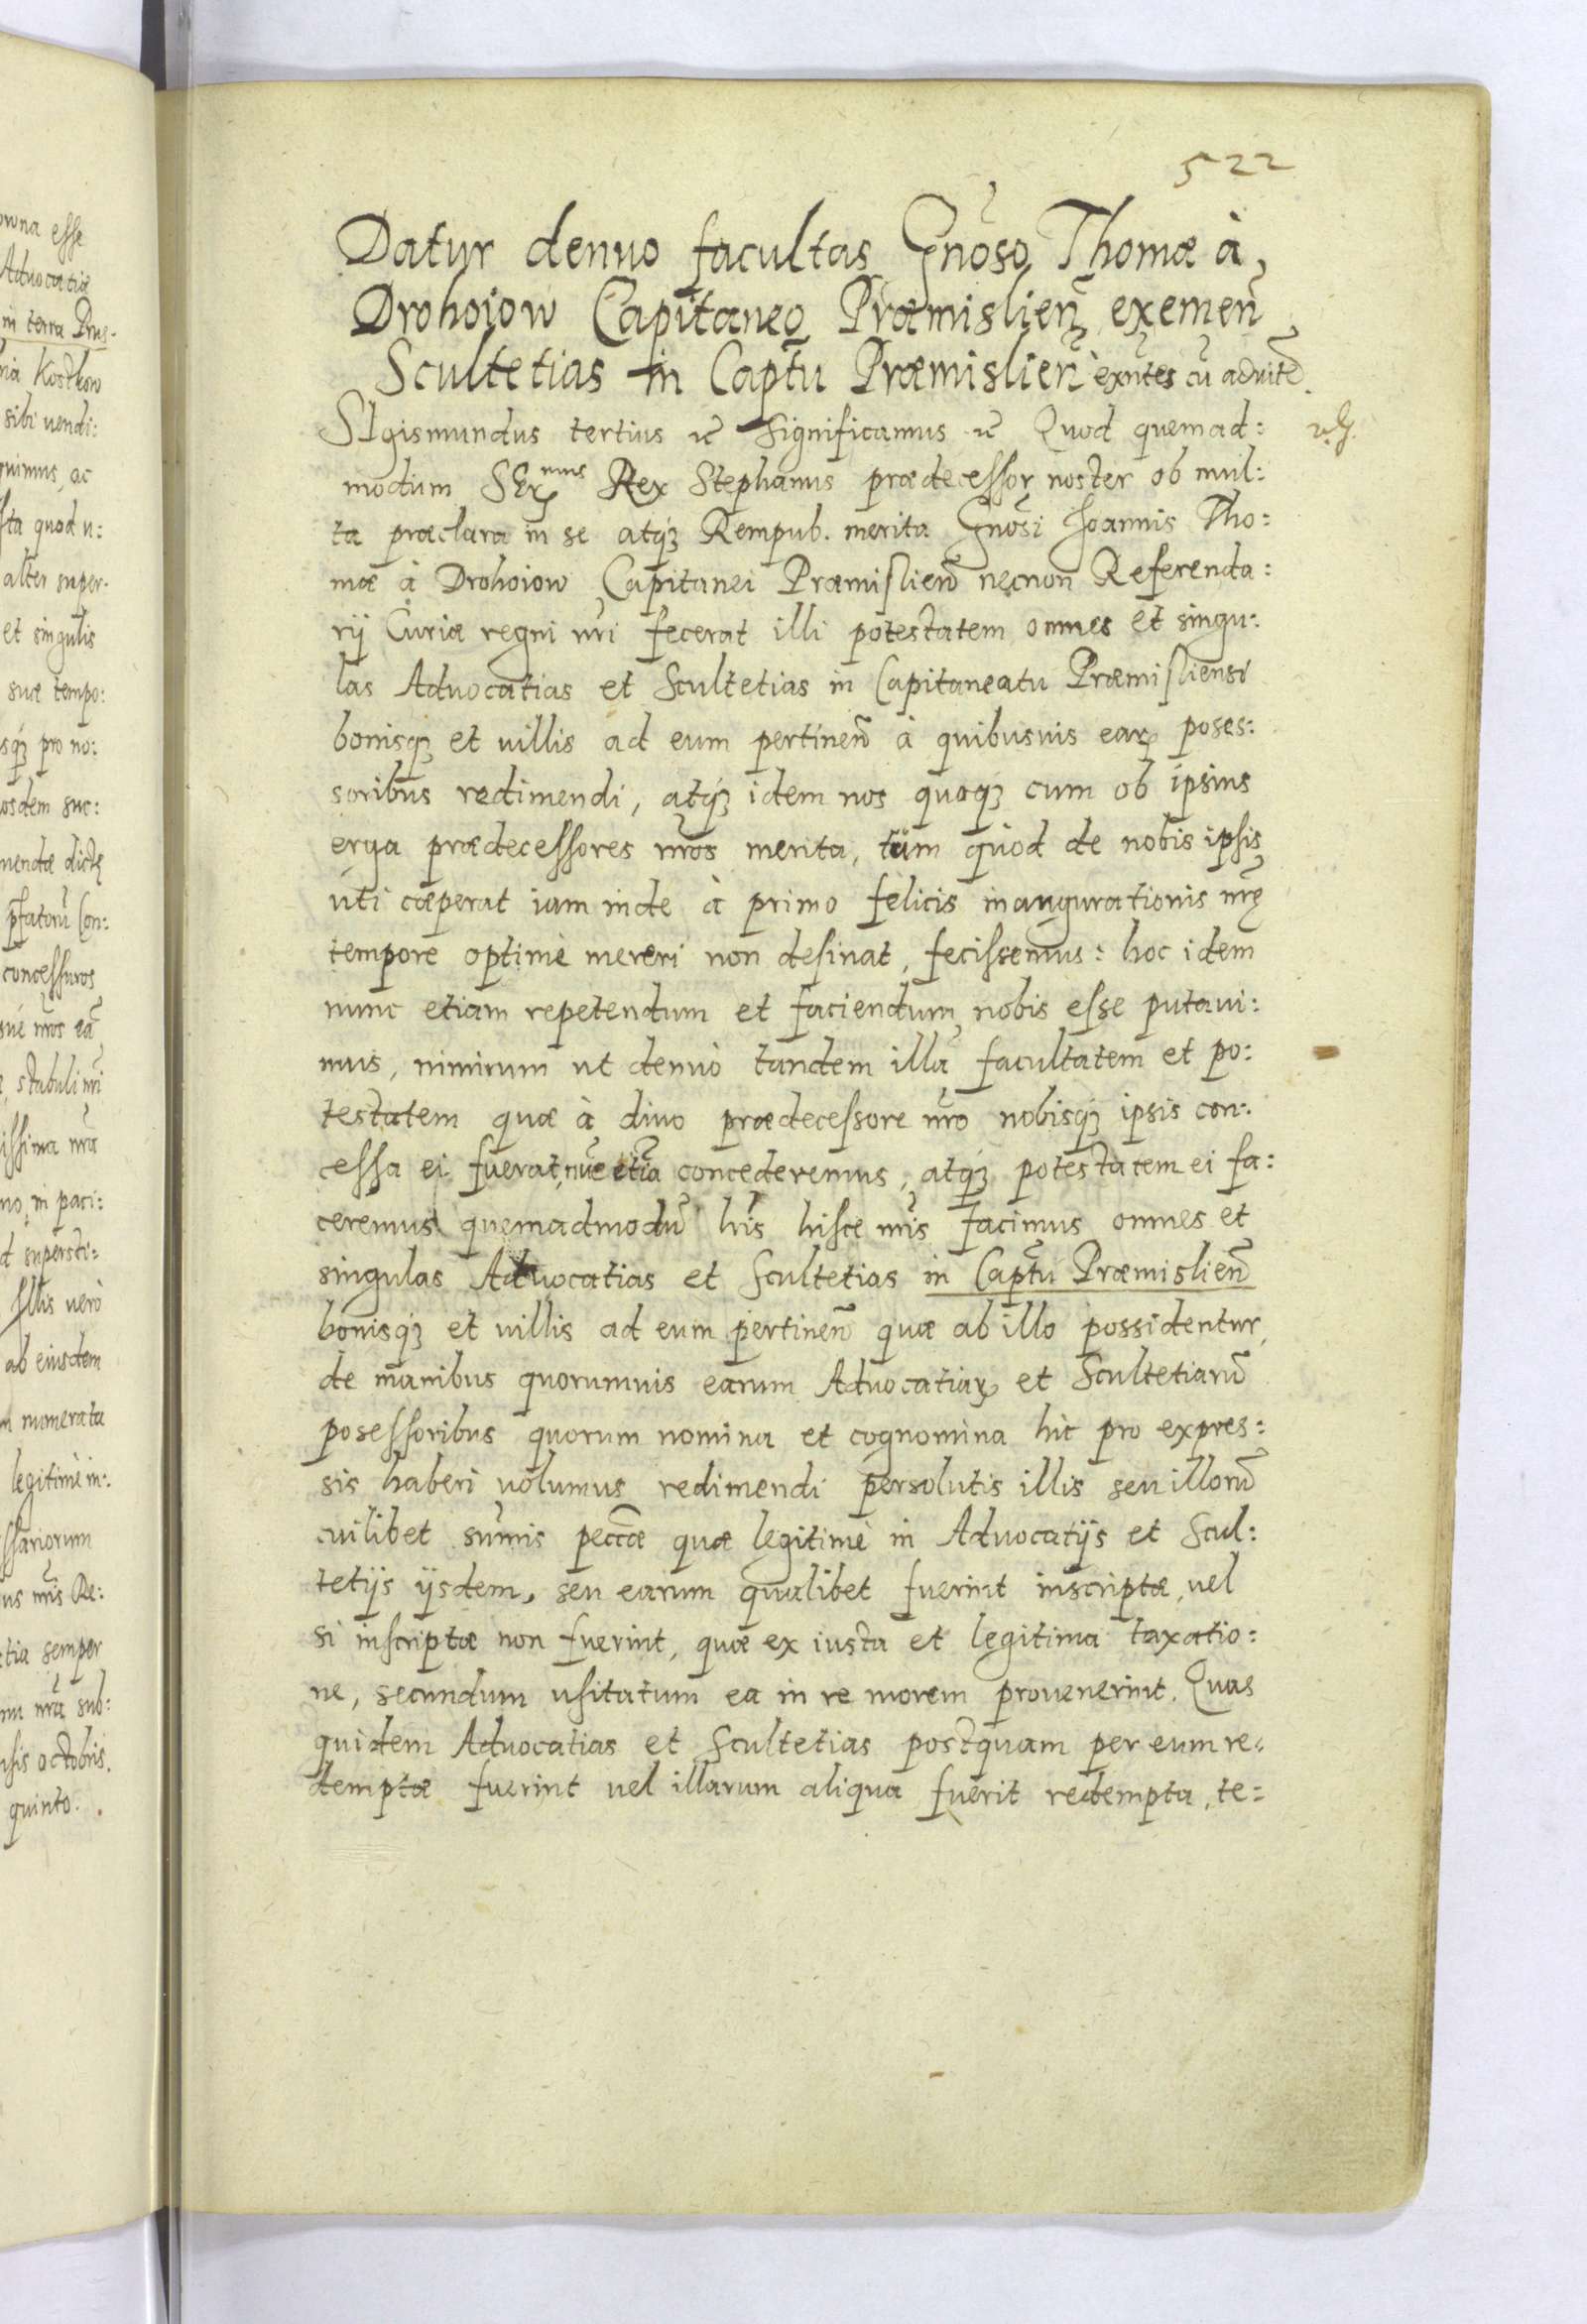 522
Datur denuo facultas Gnōso Thomæ à
Drohoiow Capitaneo Præmislieñ exemeñ
Scultetias in Capt̃u Præmislieñ exñtes cū advitē.
SIgismundus tertius ꝛc̄ Significamus ꝛc̄ Quod quemad:
modum SEr^mus Rex Stephanus prædecessor noster ob mul:
ta præclara in se atqꝫ Rempub. merita Gnōsi Joannis Tho:
mæ à Drohoiow Capitanei Præmislieñ necnon Referenda:
rij Curiæ regni nr̃i fecerat illi potestatem omnes et singu:
las Advocatias et Scultetias in Capitaneatu Præmisliensi
bonisqꝫ et villis ad eum pertineñ à quibusuis earꝝ poses:
soribus redimendi, atqꝫ idem nos quoqꝫ cum ob ipsius
erga prædecessores nr̃os merita, tum quòd de nobis ipsis
uti cæperat iam inde à primo felicis inaugurationis nr̃ę
tempore optimè mereri non desinat, fecissemus: hoc idem
nunc etiam repetendum et faciendum nobis esse putaui:
mus, nimirum ut denuò tandem illā facultatem et po:
testatem quæ à diuo prædecessore nr̃o nobisqꝫ ipsis con:
cessa ei fuerat, nūc etiā concederemus, atqꝫ potestatem ei fa:
ceremus quemadmodū hīs hisce nr̃is facimus omnes et
singulas Advocatias et Scultetias in Capt̃u Præmislieñ
bonisqꝫ et villis ad eum pertineñ quæ ab illo possidentur,
de manibus quorumuis earum Advocatiarꝝ et Scultetiarū
posessoribus quorum nomina et cognomina hic pro expres:
sis haberi uolumus redimendi persolutis illis seu illorū
cuilibet sum̄is pecc̄æ quæ legitimè in Advocatijs et Scul:
tetijs ijsdem, seu earum qualibet fuerint inscriptæ, uel
si inscriptæ non fuerint, quæ ex iusta et legitima taxatio:
ne, secundum usitatum ea in re morem prouenerint. Quas
quidem Advocatias et Scultetias postquam per eum re:
demptæ fuerint uel illarum aliqua fuerit redempta, te: